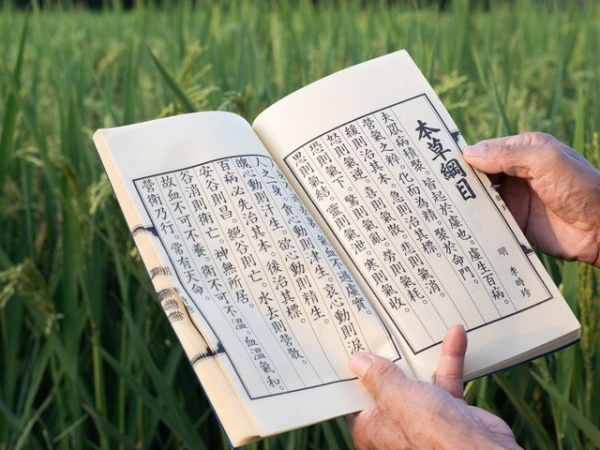 本草綱目
明 李時珍
病積聚。皆起於虛也。虛生百病。
營氣之粹。化而為精。聚於命門。
緩則治其本。急則治其標。
怒則氣逆。喜則氣散。悲則氣消。
恐則氣下。驚則氣亂。勞則氣耗。
思則氣結。則氣泄。寒則氣收。
人之一身。氣血虛實。
心動則津生。哀心動則淚
愧心動則汗生。欲心動則精生。
百病必先治其本。後治其標。
安谷則昌。絕谷則亡。水去則營散。
谷消則衛亡。神無所居。
故血不可不養。衛不可不溫。血溫氣和。
營衛乃行。常有天命。